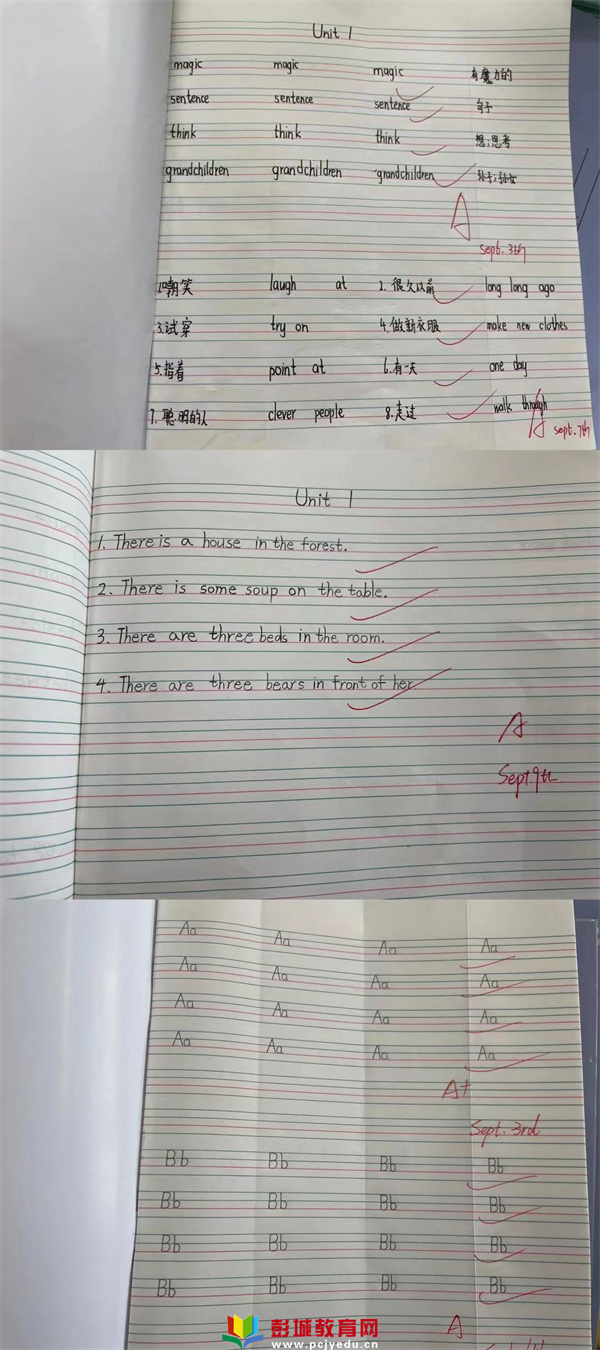 Unit 1
magic magic magic 有魔力的
sentence sentence sentence 句子
think think think 想;思考
grandchildren grandchildren grandchildren 孙子;孙女
A
Sept. 3th
1.嘲笑 laugh at 2.很久以前 long long ago
3.试穿 try on 4.做新衣服 make new clothes
5.指着 point at 6.有一天 one day
7.聪明的人 clever people 8.走过 walk through
A
Sept. 7th
Unit 1
1. There is a house in the forest.
2. There is some soup on the table.
3. There are three beds in the room.
4. There are three bears in front of her.
A
Sept. 9th.
Aa Aa Aa Aa
Aa Aa Aa Aa
Aa Aa Aa Aa
Aa Aa Aa Aa
A+
Sept. 3rd
Bb Bb Bb Bb
Bb Bb Bb Bb
Bb Bb Bb Bb
Bb Bb Bb Bb
A
彭城教育网
www.pcjyedu.cn